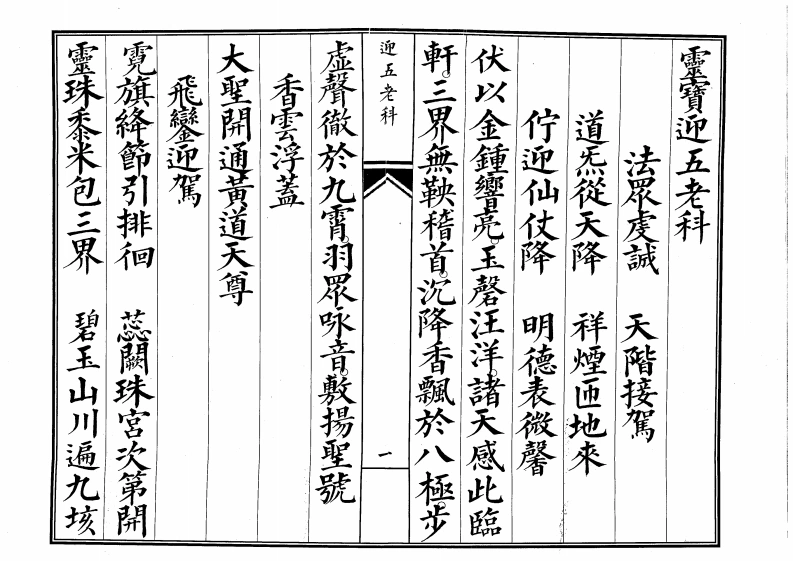 靈寶迎五老科
法眾虔誠　天階接駕
道炁從天降　祥煙匝地來
佇迎仙仗降　明德表微馨
伏以金鍾響亮。玉磬汪洋。諸天感此臨
軒。三界無鞅稽首。沉降香飄於八極。步
迎五老科
一
虛聲徹於九霄。羽眾咏音。敷揚聖號
香雲浮蓋
大聖開通黃道天尊
飛鑾迎駕
霓旗絳節引排徊　蕊闕珠宮次第開
靈珠黍米包三界　碧玉山川遍九垓